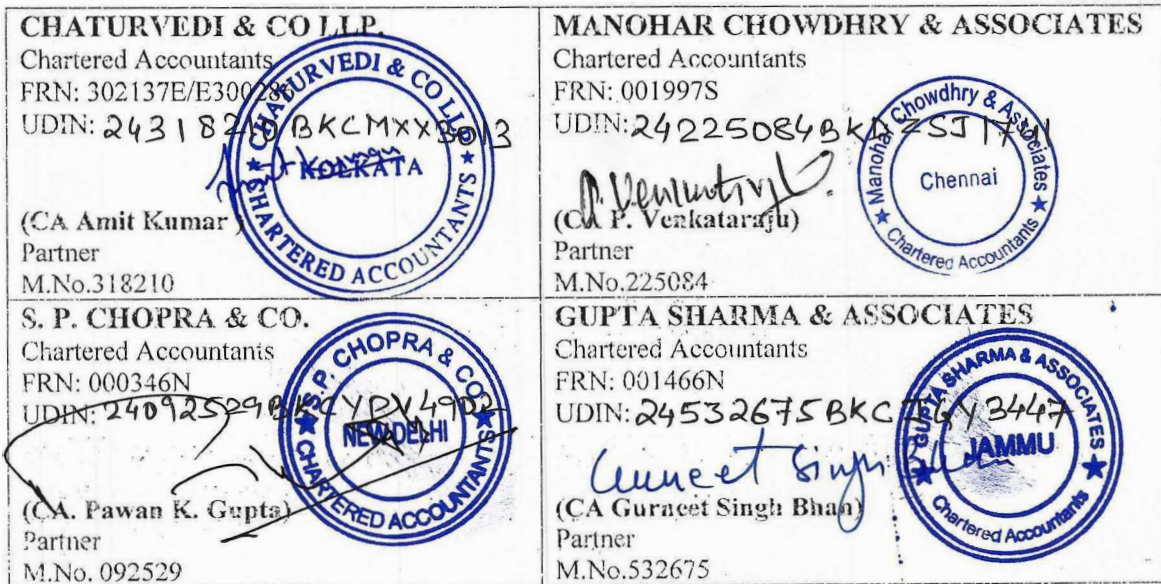 CHATURVEDI & CO LLP.
Chartered Accountants
FRN: 302137E/E300286
UDIN: 24318210BKCMXX3013
CHATURVEDI & CO LLP
KOLKATA
CHARTERED ACCOUNTANTS
(CA Amit Kumar )
Partner
M.No.318210
MANOHAR CHOWDHRY & ASSOCIATES
Chartered Accountants
FRN: 001997S
UDIN:
Manohar Chowdhry & Associates
Chennai
Chartered Accountants
(CA P. Venkataraju)
Partner
M.No.225084
S. P. CHOPRA & CO.
Chartered Accountants
FRN: 000346N
UDIN:
S.P. CHOPRA & CO.
NEW DELHI
CHARTERED ACCOUNTANTS
(CA. Pawan K. Gupta)
Partner
M.No. 092529
GUPTA SHARMA & ASSOCIATES
Chartered Accountants
FRN: 001466N
UDIN: 24532675BKCTGY3447
GUPTA SHARMA & ASSOCIATES
JAMMU
Chartered Accountants
Gurneet Singh Bhan
(CA Gurneet Singh Bhan)
Partner
M.No.532675